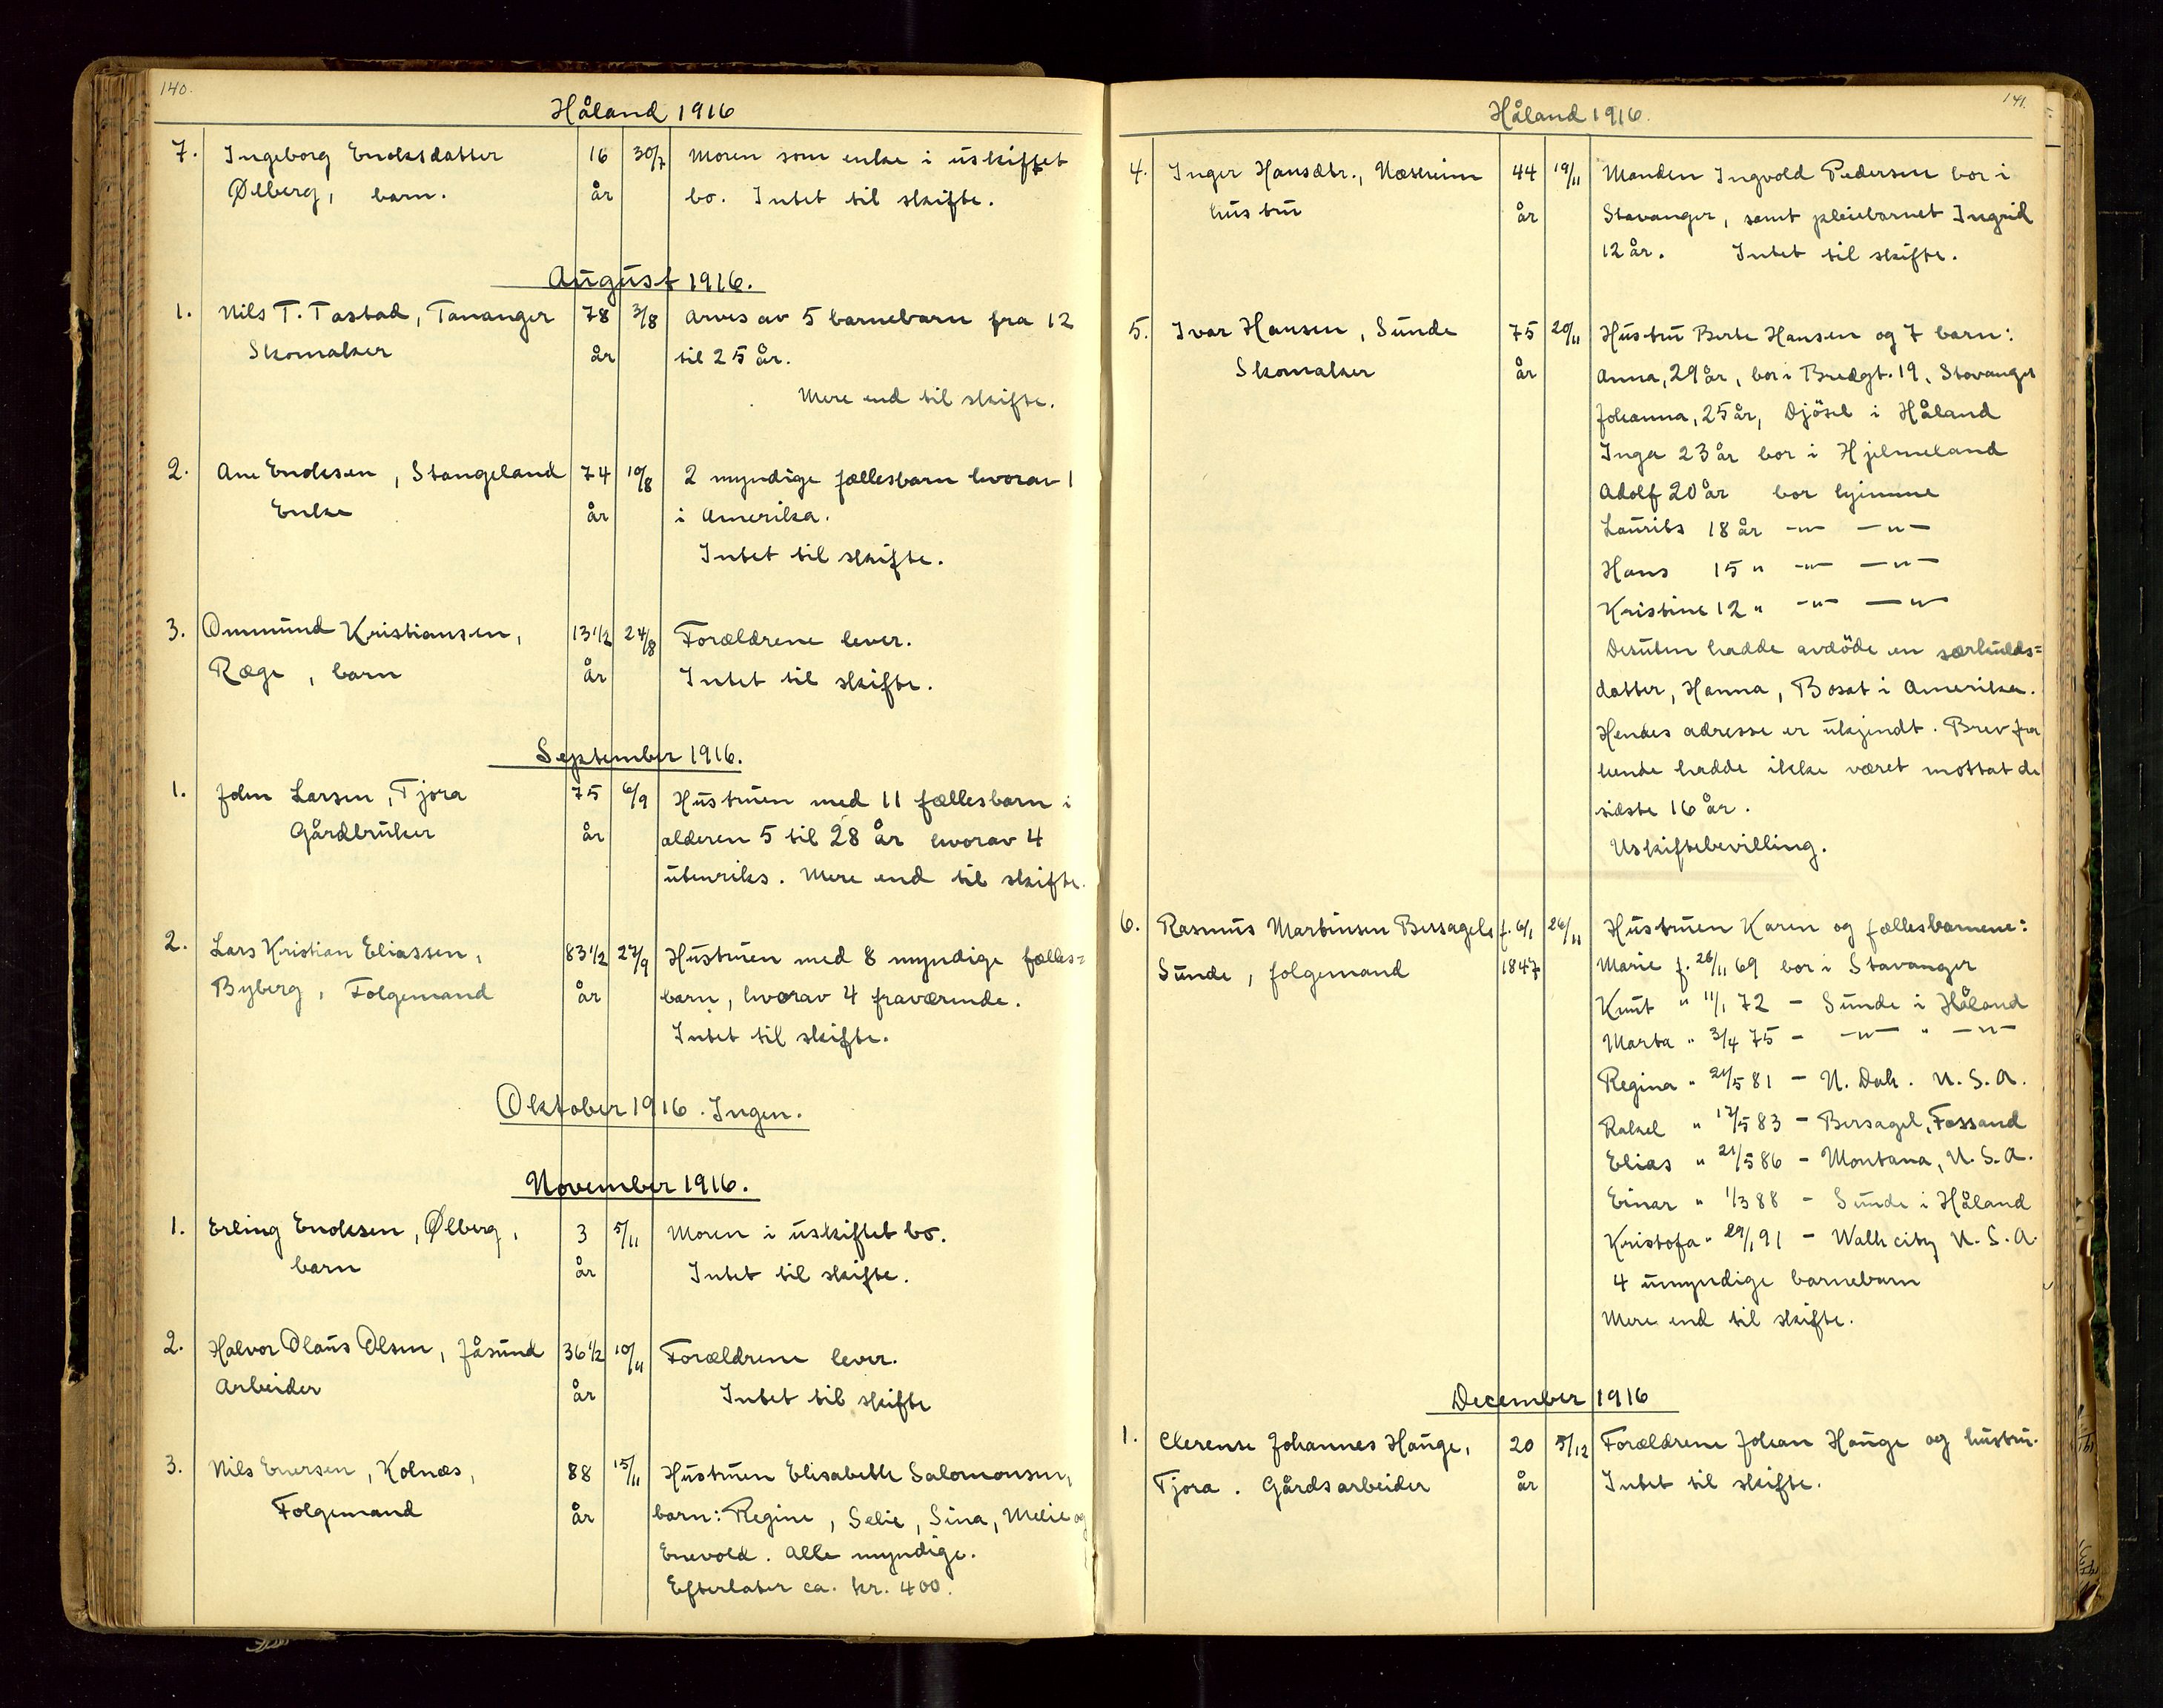 140.
Håland 1916
7. Ingeborg Enoksdatter 16 30/7 Moren som enke i uskiftet
Ølberg, barn. år bo. Intet til skifte.
August 1916.
1. Nils T. Tastad, Tananger 78 3/8 Arves av 5 barnebarn fra 12
Skomaker år til 25 år.
Mere end til skifte.
2. Ane Enoksen, Stangeland 74 10/8 2 myndige fællesbarn hvorav 1
Enke år i Amerika.
Intet til skifte.
3. Ommund Kristiansen, 13 1/2 24/8 Forældrene lever.
Ræge, barn år Intet til skifte.
September 1916.
1. John Larsen, Tjora 75 6/9 Hustruen med 11 fællesbarn i
Gårdbruker år alderen 5 til 28 år hvorav 4
utenriks. Mere end til skifte.
2. Lars Kristian Eliassen, 83 1/2 27/9 Hustruen med 8 myndige fælles=
Byberg, Folgemand år barn, hvorav 4 fraværende.
Intet til skifte.
Oktober 1916. Ingen.
November 1916.
1. Erling Enoksen, Ølberg, 3 5/11 Moren i uskiftet bo.
barn år Intet til skifte.
2. Halvor Olaus Olsen, Jåsund 36 1/2 10/11 Forældrene lever.
Arbeider år Intet til skifte
3. Nils Enersen, Kolnæs, 88 15/11 Hustruen Elisabeth Salomonsen,
Folgemand år barn: Regine, Selie, Sina, Melie og
Enevold. Alle myndige.
Efterlater ca. kr. 400.
141.
Håland 1916.
4. Inger Hansdtr., Næsheim 44 19/11 Manden Ingvold Pedersen bor i
hustru år Stavanger, samt pleiebarnet Ingrid
12 år. Intet til skifte.
5. Ivar Hansen, Sunde 75 20/11 Hustru Berte Hansen og 7 barn:
Skomaker år Anna, 29 år, bor i Bredgt. 19, Stavanger
Johanna, 25 år, Djösel i Håland
Inga 23 år bor i Hjelmeland
Adolf 20 år bor hjemme
Laurits 18 år -"- -"-
Hans 15 " -"- -"-
Kristine 12 " -"- -"-
Desuten hadde avdöde en særkulds=
datter, Hanna, Bosat i Amerika.
Hendes adresse er ukjendt. Brev fra
hende hadde ikke været mottat de
sidste 16 år.
Uskiftebevilling.
6. Rasmus Martinsen Bersagels f. 6/1 26/11 Hustruen Karen og fællesbarnene:
Sunde, folgemand 1847 Marie f. 26/11 69 bor i Stavanger
Knut " 11/1 72 - Sunde i Håland
Marta " 3/4 75 - -"- " -"-
Regina " 21/5 81 - N. Dak. U.S.A.
Rakel " 17/5 83 - Bersagel, Fossand
Elias " 21/5 86 - Montana, U.S.A.
Einar " 1/3 88 - Sunde i Håland
Kristofa " 29/1 91 - Walh city U.S.A.
4 umyndige barnebarn
Mere end til skifte.
December 1916
1. Clerense Johannes Hauge, 20 5/12 Forældrene Johan Hauge og hustru.
Tjora. Gårdsarbeider år Intet til skifte.